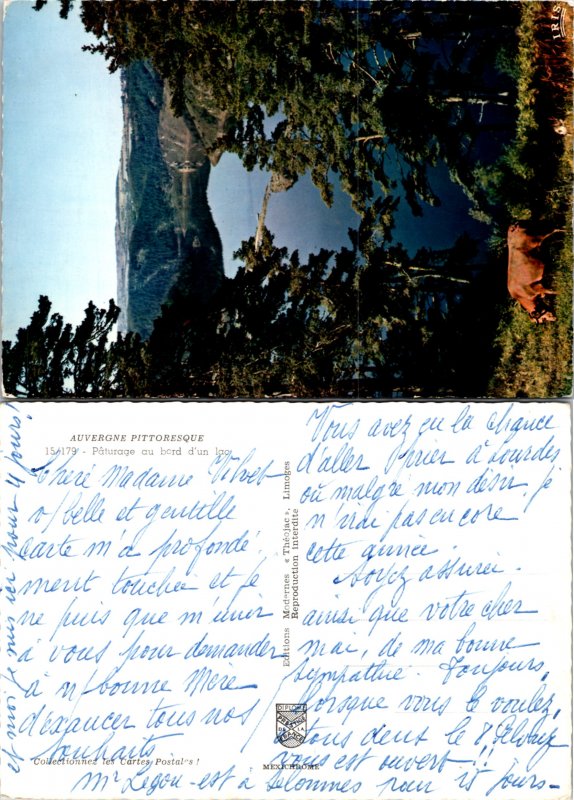 IRIS
AUVERGNE PITTORESQUE
15/179 - Pâturage au bord d'un lac
Chère Madame
v/ belle et gentille
carte m'a profondé-
ment touchée et je
ne puis que m'unir
à vous pour demander
à n/ bonne Mère
d'exaucer tous nos
souhaits
Mr est à pour 15 jours-
et moi je suis ici pour 4 jours!
Collectionnez les Cartes Postales !
Editions Modernes « Théojac », Limoges
Reproduction interdite
MEXICHROME
Vous avez eu la chance
d'aller prier à Lourdes
où malgré mon désir, je
n'irai pas encore
cette année.
Soyez assurée.
ainsi que votre cher
mari, de ma bonne
sympathie. Toujours,
lorsque vous le voulez,
tous deux le
vous est ouvert!!